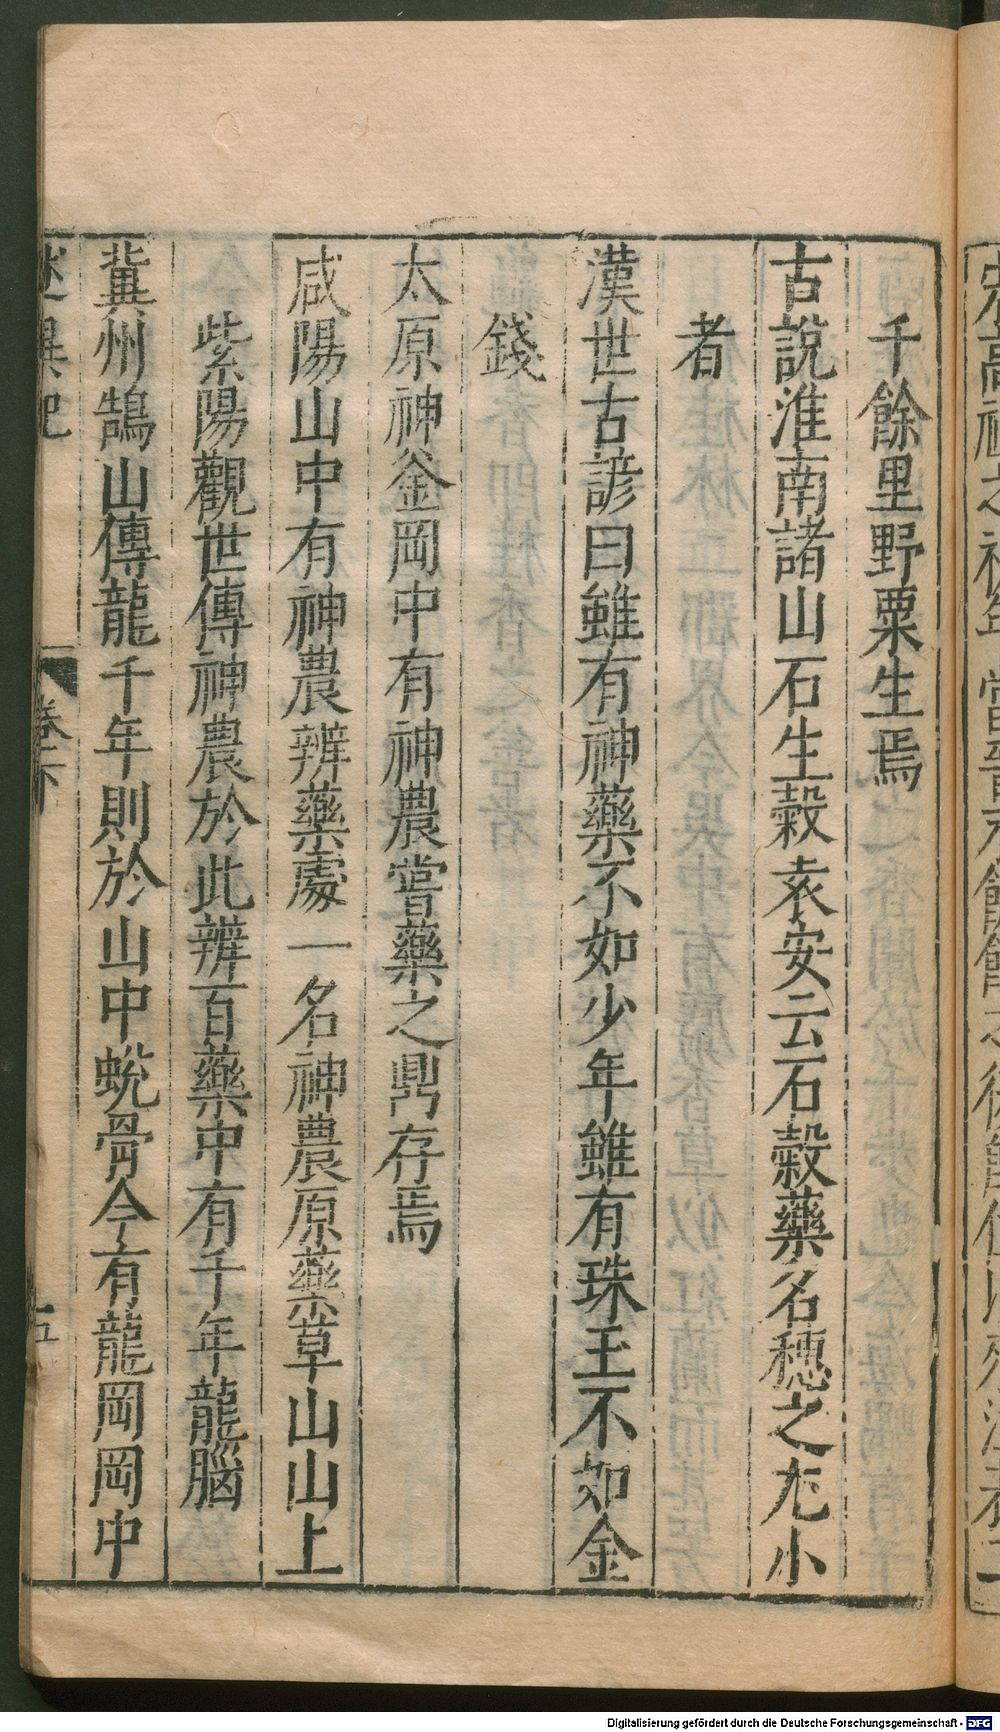 千餘里野粟生焉
古說淮南諸山石生穀袁安云石穀藥名穗之尤小
者
漢世古諺曰雖有神藥不如少年雖有珠玉不如金
錢
太原神釜岡中有神農嘗藥之鼎存焉
咸陽山中有神農辨藥處一名神農原藥草山山上
紫陽觀世傳神農於此辨百藥中有千年龍腦
冀州鵠山傳龍千年則於山中蛻骨今有龍岡岡中
述異記 卷下 五
Digitalisierung gefördert durch die Deutsche Forschungsgemeinschaft - DFG